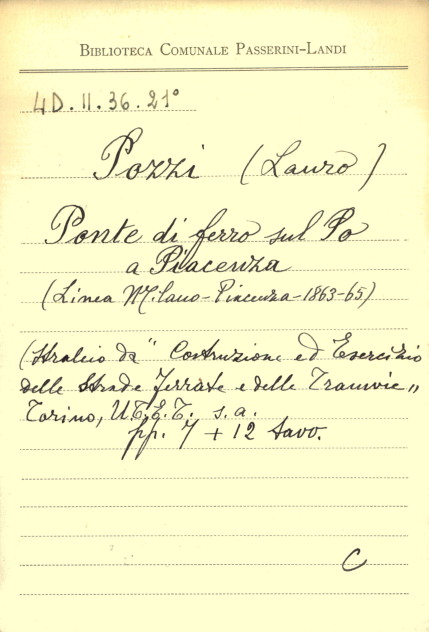 BIBLIOTECA COMUNALE PASSERINI-LANDI
4D.II.36.21°
Pozzi (Lauro)
Ponte di ferro sul Po
a Piacenza
(Linea Milano-Piacenza-1863-65)
(Stralcio da "Costruzione ed Esercizio
delle Strade Ferrate e delle Tramvie"
Torino, U.T.E.T. s.a.
pp. 7 + 12 tavo.
C